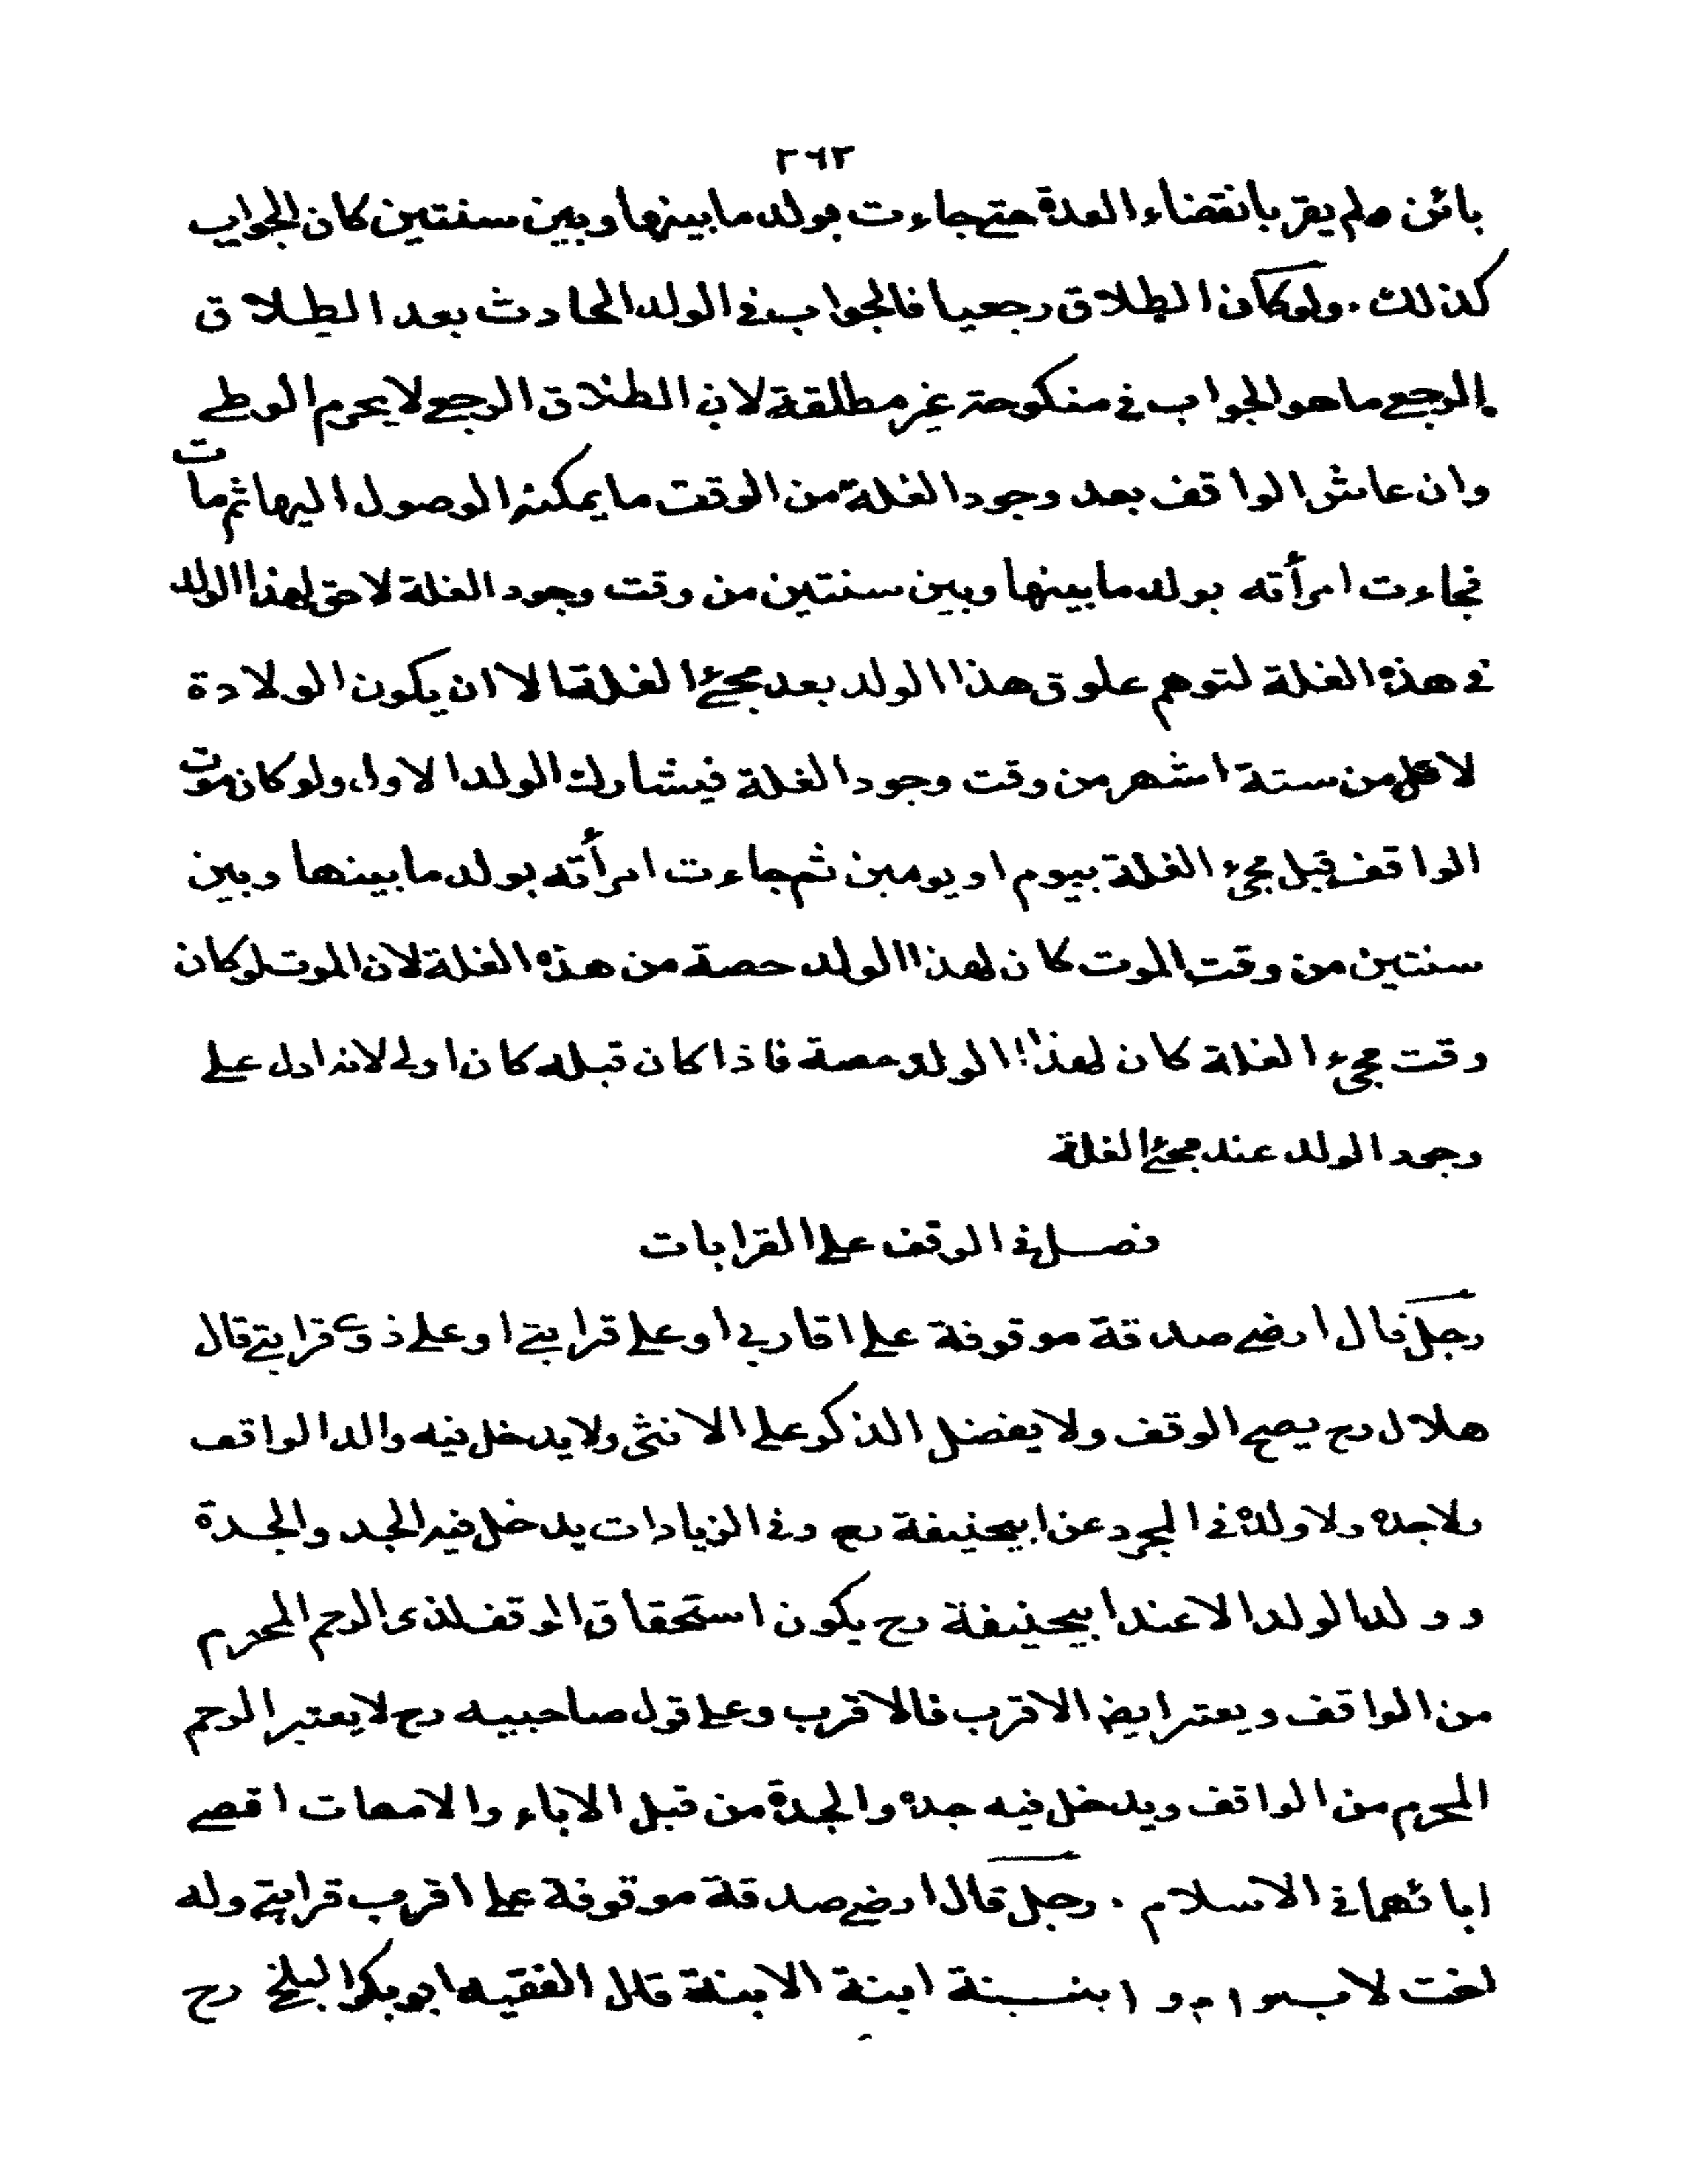 ٣٦٢
بائن ولم يقر بانقضاء العدة حتى جاءت بولد ما بينها وبين سنتين كان الجواب
كذلك . ولو كان الطلاق رجعيا فالجواب في الولد الحادث بعد الطلاق
الرجعي ما هو الجواب في منكوحة غير مطلقة لان الطلاق الرجعي لا يحرم الوطي
وان عاش الواقف بعد وجود الغلة من الوقت ما يمكنه الوصول اليها ثم مات
فجاءت امرأته بولد ما بينها وبين سنتين من وقت وجود الغلة لا حق لهذا الولد
في هذه الغلة لتوهم علوق هذا الولد بعد مجئ الغلة الا ان يكون الولادة
لاقل من ستة اشهر من وقت وجود الغلة فيشارك الولد الاول ولو كان موت
الواقف قبل مجيء الغلة بيوم او يومين ثم جاءت امرأته بولد ما بينها وبين
سنتين من وقت الموت كان لهذا الولد حصة من هذه الغلة لان الموت لو كان
وقت مجيء الغلة كان لهذا الولد حصة فاذا كان قبله كان اولى لانه ادل على
وجود الولد عند مجئ الغلة
فصل في الوقف على القرابات
رجل قال ارضي صدقة موقوفة على اقاربي او على قرابتي او على ذوي قرابتي قال
هلال رح يصح الوقف ولا يفضل الذكر على الانثى ولا يدخل فيه والد الواقف
ولا جده ولا ولده في المجرد عن ابيحنيفة رح وفي الزيادات يدخل فيه الجد والجدة
وولد الولد الا عند ابيحنيفة رح يكون استحقاق الوقف لذى الرحم المحرم
من الواقف ويعتبر ايضا الاقرب فالاقرب وعلى قول صاحبيه رح لا يعتبر الرحم
المحرم من الواقف ويدخل فيه جده والجدة من قبل الاباء والامهات اقصى
ابائهما في الاسلام . رجل قال ارضي صدقة موقوفة على اقرب قرابتي وله
اخت لاب وام و ابنة ابنة الابنة قال الفقيه ابو بكر البلخي رح